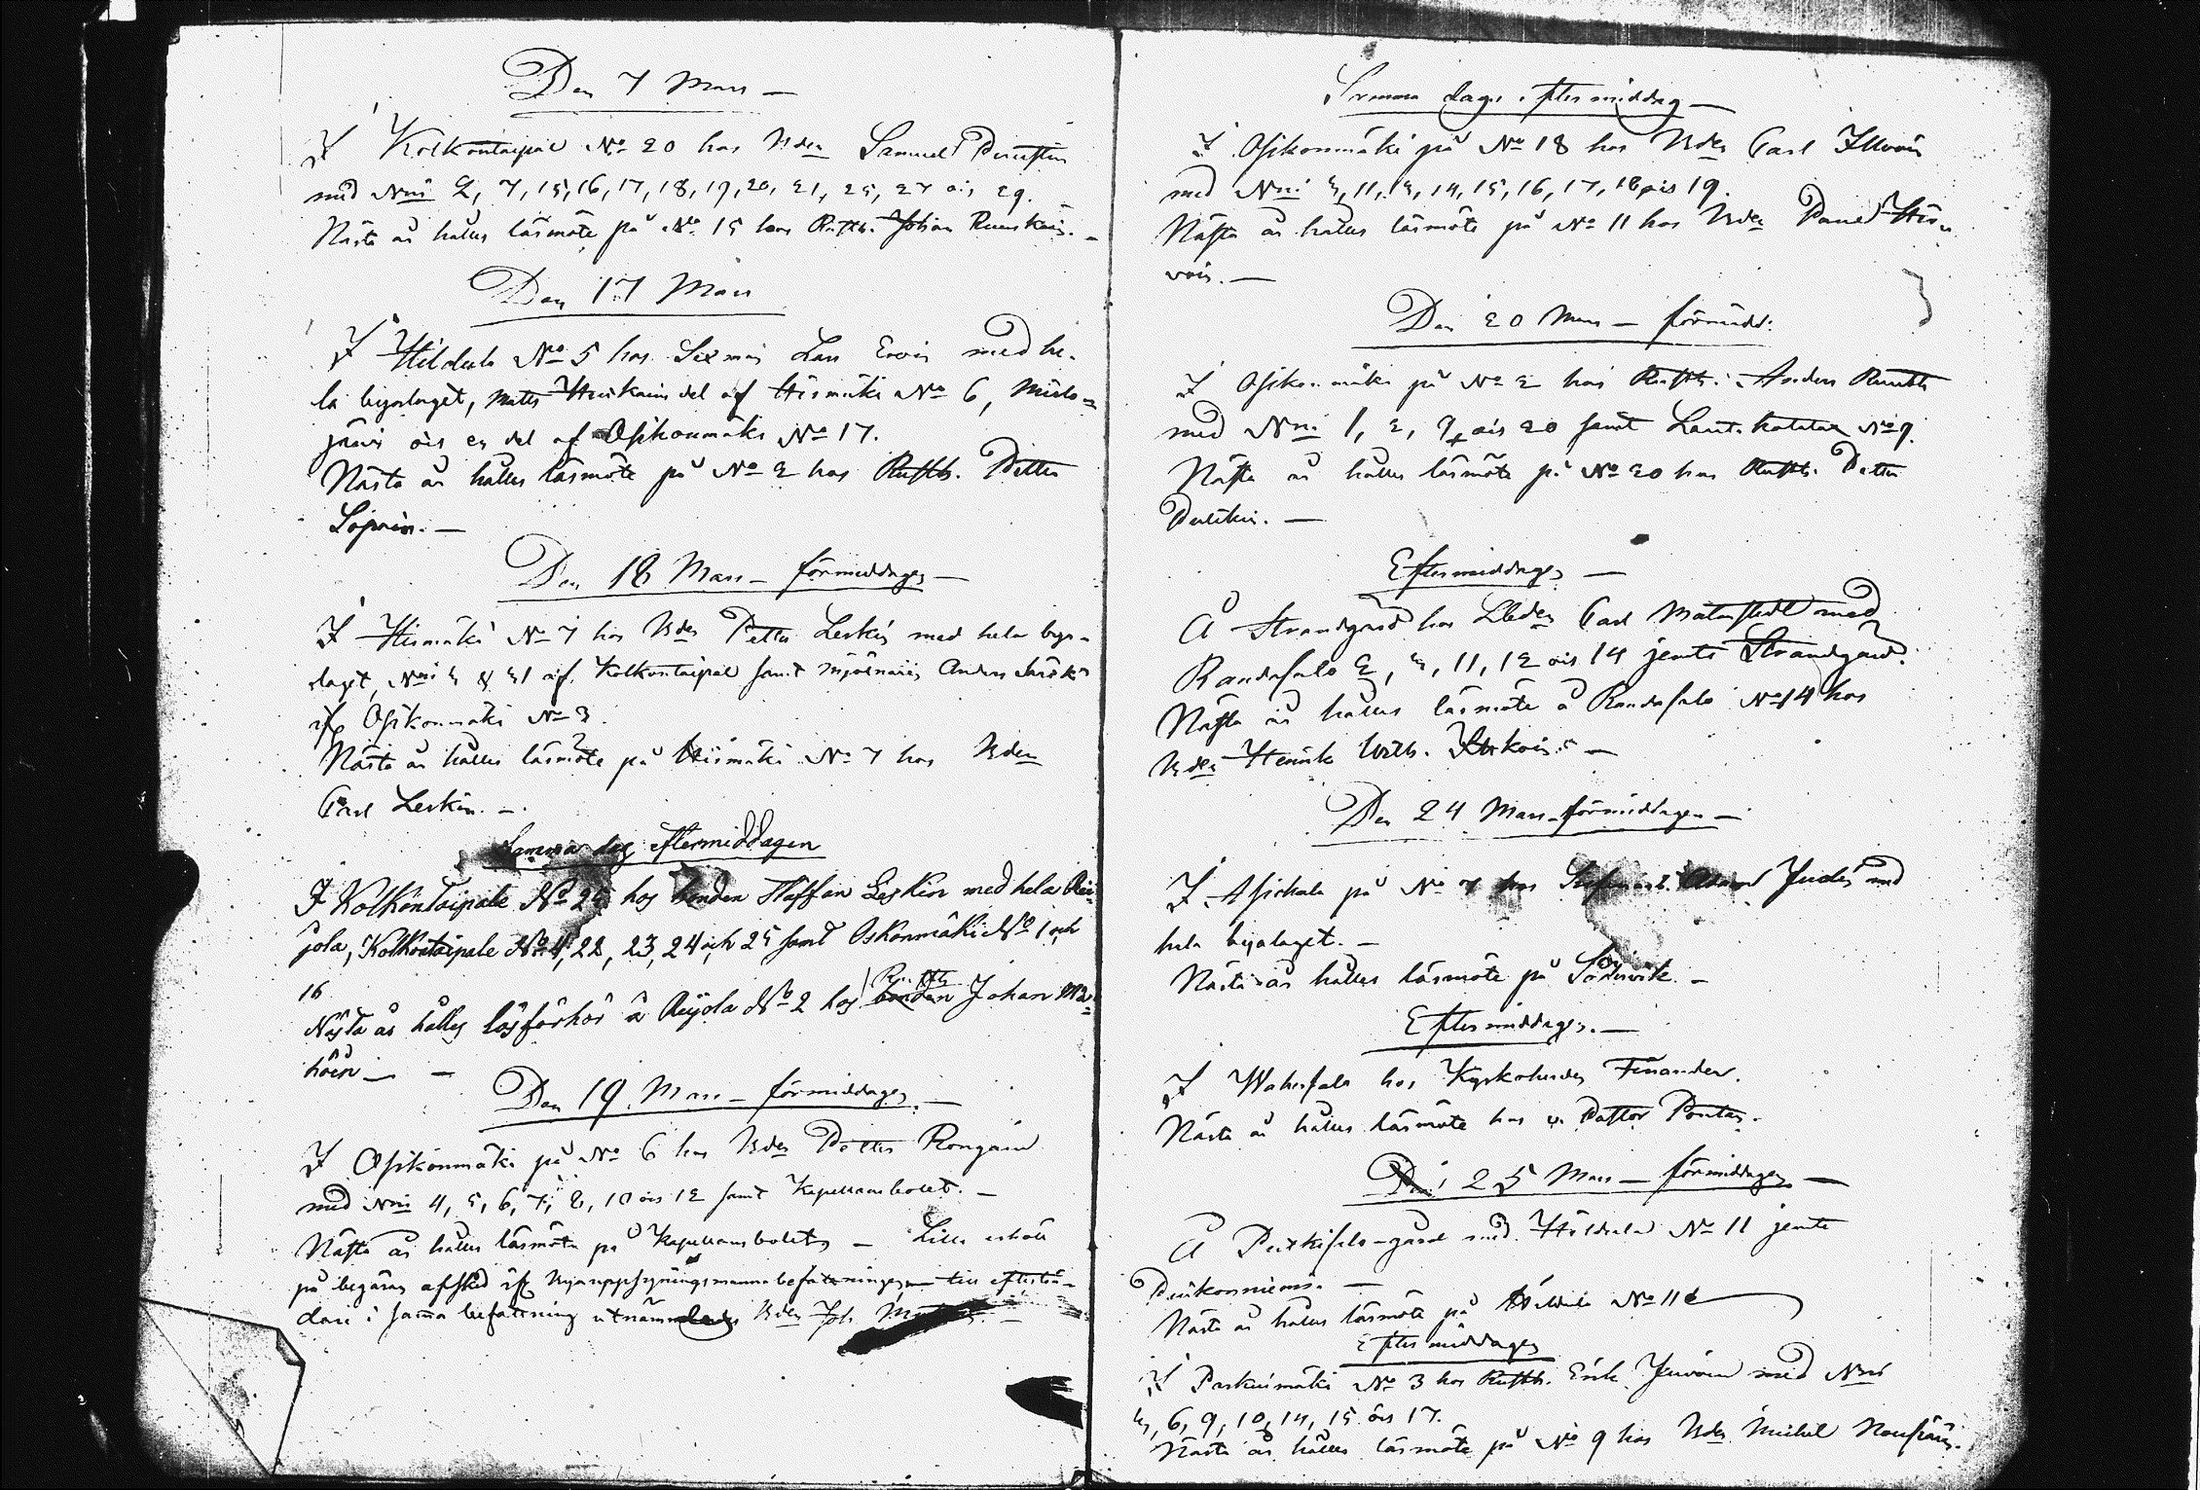 Den 7 Mars —
I Kolkontaipale No 20 hos Bden Samuel
med Nris 2, 7, 15, 16, 17, 18, 19, 20, 21, 25, 27 och 29.
Nästa år hålles läsmöte på No 15 hos Rusth. Johan
Den 17 Mars
I Hildula No 5 hos Sexman Lars med he-
la byalaget, Matts del af Hismäki No 6,
järvi och en del af Osikonmäki No 17.
Nästa år hålles läsmöte på No 2 hos Rusth. Petter
Den 18 Mars — förmiddagen —
I Hismäki No 7 hos Bden Petter Leskin med hela bya-
laget, Nris af Kolkontaipale samt mjölnaren Anders
af Osikonmäki No 3.
Nästa år hålles läsmöte på Hiismäki No 7 hos Bden
Carl Leskin. —
Samma dag eftermiddagen
I Kolkontaipale No 25 hos bonden Staffan Leskin med hela Rei-
jola, Kolkontaipale No 4, 22, 23, 24 och 25 samt Oskonmäki No 1 och
16
Nästa år hålles läsförhör å Reijola No 2 hos bonden Johan
Den 19 Mars — förmiddagen. —
I Osikonmäki på No 6 hos Bden Petter Rongain
med Nris 4, 5, 6, 7, 8, 10 och 12 samt Kapellansbolet. —
Nästa år hålles läsmöte på Kapellansbolet — erhöll
på begäran afsked ifr. byauppsyningsmannabefattningen — till efterträ-
dare i samma befattning utnämndes Bden Joh.
Samma dags eftermiddag —
I Osikonmäki på No 18 hos Bden Carl
med Nris 11, 13, 14, 15, 16, 17, 18 och 19.
Nästa år hålles läsmöte på No 11 hos Bden
Den 20 Mars — förmidd:
I Osikonmäki på No 2 hos Rusth. Anders
med Nris 1, 2, 9 och 20 samt No 9.
Nästa år hålles läsmöte på No 20 hos Rusth. Petter
Eftermiddagen —
Å Strandgård hos Carl med
Randasalo 2, 11, 12 och 14 jemte Strandgård.
Nästa år hålles läsmöte å Randasalo No 14 hos
Bden Henrik Wilh.
Den 24 Mars — förmiddagen —
I Asikala på No 7 hos med
hela byalaget. —
Nästa år hålles läsmöte på Söderwik. —
Eftermiddagen. —
I Wahersalo hos Kyrkoherden Finander.
Nästa år hålles läsmöte hos v. Pastor Pontan.
Den 25 Mars — förmiddagen —
Å gård med Hildula No 11 jemte
Nästa år hålles läsmöte på Hildula No 11
Eftermiddagen
I Parkuimäki No 3 hos Rusth. Erik med Nris
6, 9, 10, 14, 15 och 17.
Nästa år hålles läsmöte på No 9 hos Bden Michel